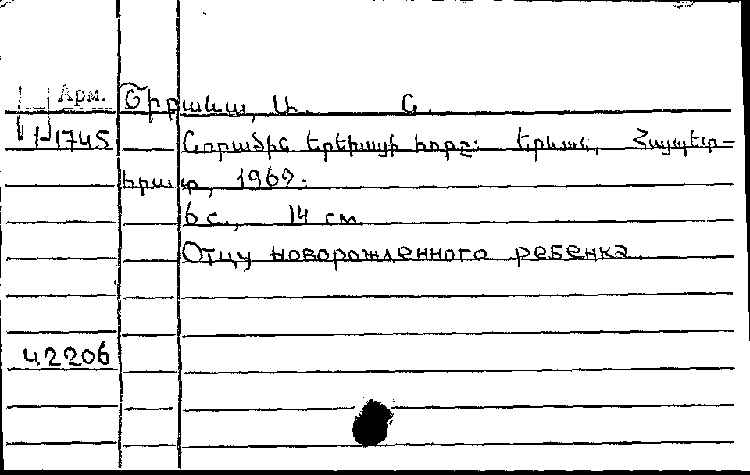 Арм. Շիրանյա, Ա. Գ.
1-1745 Նորածին երեխայի հորը: Երևան, Հայպետ-
հրատ, 1962.
6 с., 14 см.
Отцу новорожденного ребенка.
42206